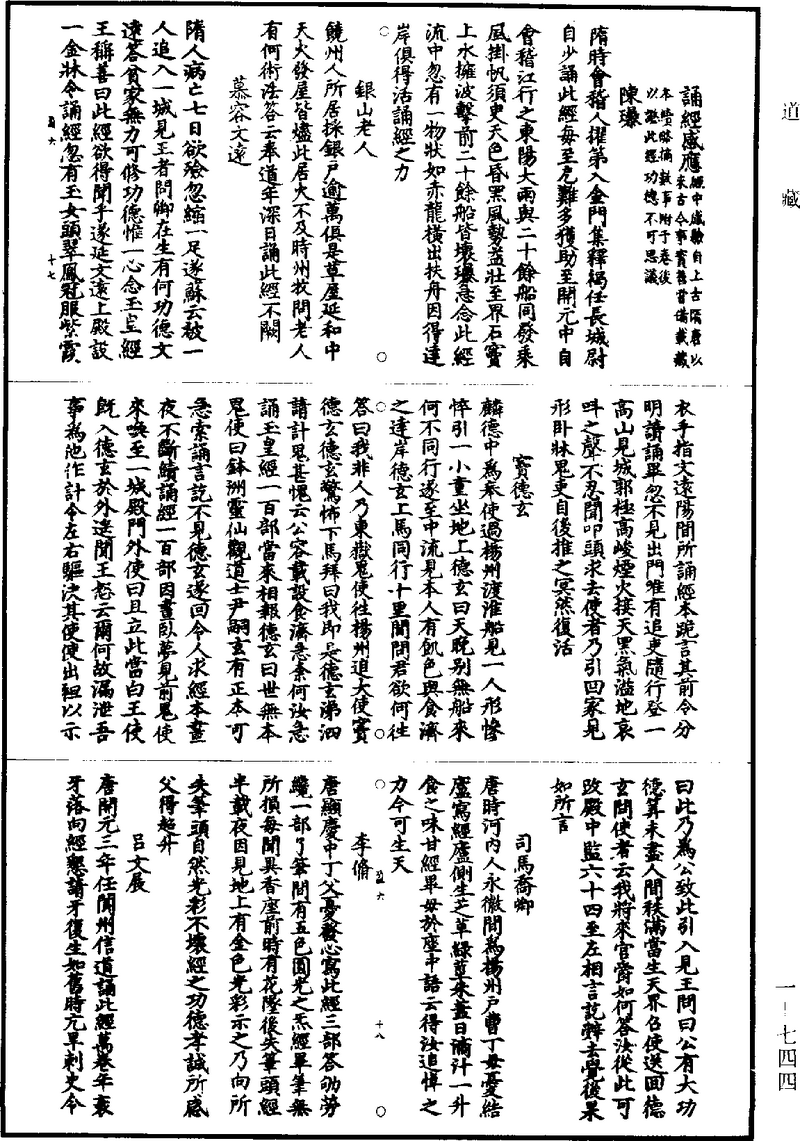 道藏
誦經感應經中感驗自上古隋唐以
來古今事實舊皆備載藏
本時略摘數事附于卷後
以證此經功德不可思議
陳瓊
隋時會稽人擢第入金門集釋褐任長城尉
自少誦此經每至危難多獲助至開元中自
會稽江行之東陽大雨與二十餘船同發乘
風掛帆須臾天色昏黑風勢益壯至界石竇
上水擁波擊前二十餘船皆壞瓊急念此經
流中忽有一物狀如赤龍橫出扶舟因得達
岸俱得活誦經之力
銀山老人
饒州人所居採銀戶逾萬俱是草屋延和中
天火發屋皆燼此居火不及時州牧問老人
有何術法答云奉道年深日誦此經不闕
慕容文遠
隋人病亡七日欲殮忽縮一足遂蘇云被一
人追入一城見王者問卿在生有何功德文
遠答貧家無力可修功德惟一心念玉皇經
王稱善曰此經欲得聞乎遂延文遠上殿設
一金牀令誦經忽有玉女頭翠鳳冠服紫霞
國六 十七
衣手指文遠陽間所誦經本跪言其前令分
明讀誦畢忽不見出門唯有追吏隨行登一
高山見城郭極高峻煙火接天黑氣溢地哀
叫之聲不忍聞叩頭求去使者乃引回家見
形卧牀鬼吏自後推之冥然復活
竇德玄
麟德中為奉使過楊州渡淮船見一人形慘
悴引一小童坐地上德玄曰天晚別無船來
何不同行遂至中流見本人有飢色與食濟
之達岸德玄上馬同行十里間問君欲何往
答曰我非人乃東嶽鬼使往楊州追大使竇
德玄德玄驚怖下馬拜曰我即是德玄涕泗
請計鬼甚愧云公容載設食濟急奈何汝急
誦玉皇經一百部當來相報德玄曰世無本
鬼使曰鉢洲靈仙觀道士尹嗣玄有正本可
急索誦言訖不見德玄遂回令人求經本晝
夜不斷續誦經一百部因晝卧夢見前鬼使
來喚至一城殿門外使曰且立此當白王使
既入德玄於外遙聞王怒云爾何故漏泄吾
事為他作計令左右驅決其使使出袒以示
曰此乃為公致此引入見王問曰公有大功
德算未盡人間秩滿當生天界召使送回德
玄問使者云我將來官爵如何答汝從此可
改殿中監六十四至左相言訖辭去覺後果
如所言
司馬喬卿
唐時河內人永徽間為楊州戶曹丁母憂結
廬寫經廬側生芝草綠莖朱蓋日滴汁一升
食之味甘經畢母於座中語云得汝追悼之
力今可生天
李脩
國六 十八
唐顯慶中丁父憂發心寫此經三部答劬勞
纔一部了筆間有五色圓光之炁經畢筆無
所損每聞異香座前時有花墜後失筆頭經
半載夜因見地上有金色光彩示之乃向所
失筆頭自然光彩不壞經之功德孝誠所感
父得超升
呂文展
唐開元三年任閬州信道誦此經萬卷年衰
牙落向經懇請牙復生如舊時亢旱刺史令
一-七四四